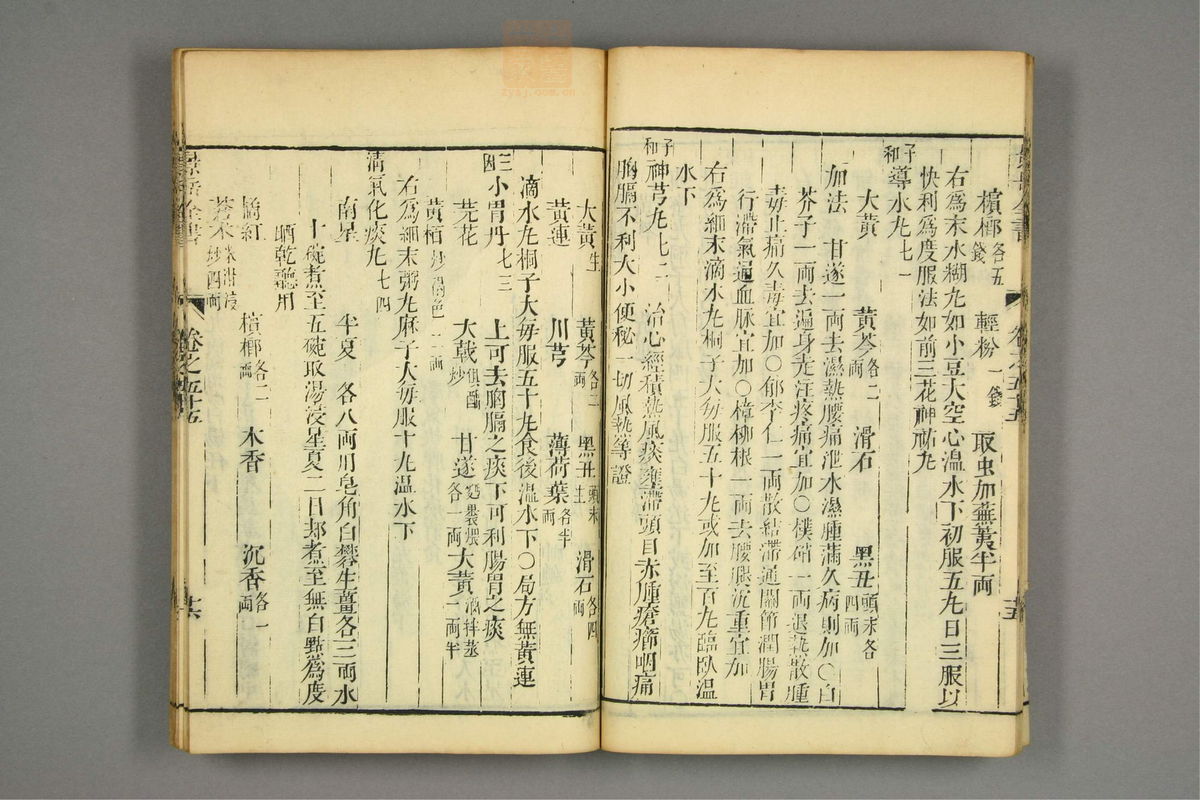 檳榔各五錢 輕粉一錢 取虫加蕪荑半両
右爲末水糊丸如小豆大空心温水下初服五丸日三服以
快利爲度服法如前三花神祐丸
子和導水丸七一
大黃 黃芩各二両 滑石 黑丑頭末各四両
加法 甘遂一両去濕熱腰痛泄水濕腫滿久病則加○白
芥子一両去遍身走注疼痛宜加○樸硝一両退熱散腫
毒止痛久毒宜加○郁李仁一両散結滯通關節潤腸胃
行滯氣通血脉宜加○樟柳根一両去腰腿沉重宜加
右爲細末滴水丸桐子大每服五十丸或加至百丸臨臥温
水下
子和神芎丸七二 治心經積熱風痰壅滯頭目赤腫瘡癤咽痛
胸膈不利大小便秘一切風熱等證
大黃生 黃芩各二両 黑丑頭末生 滑石各四両
黃連 川芎 薄荷葉各半両
滴水丸桐子大每服五十丸食後温水下○局方無黃連
三因小胃丹七三 上可去胸膈之痰下可利腸胃之痰
芫花 大戟俱醋炒 甘遂麪裹煨各一両 大黃酒拌蒸一両半
黃栢炒褐色二両
右爲細末粥丸麻子大每服十丸温水下
清氣化痰丸七四
南星 半夏各八両用皂角白礬生薑各三両水
十碗煮至五碗取湯浸星夏二日却煮至無白點爲度
晒乾聽用
橘紅 檳榔各二両 木香 沉香各一両
蒼朮米泔浸炒四両
景岳全書 卷之五十五 廿五
景岳全書 卷之五十五 廿六
zysj.com.cn